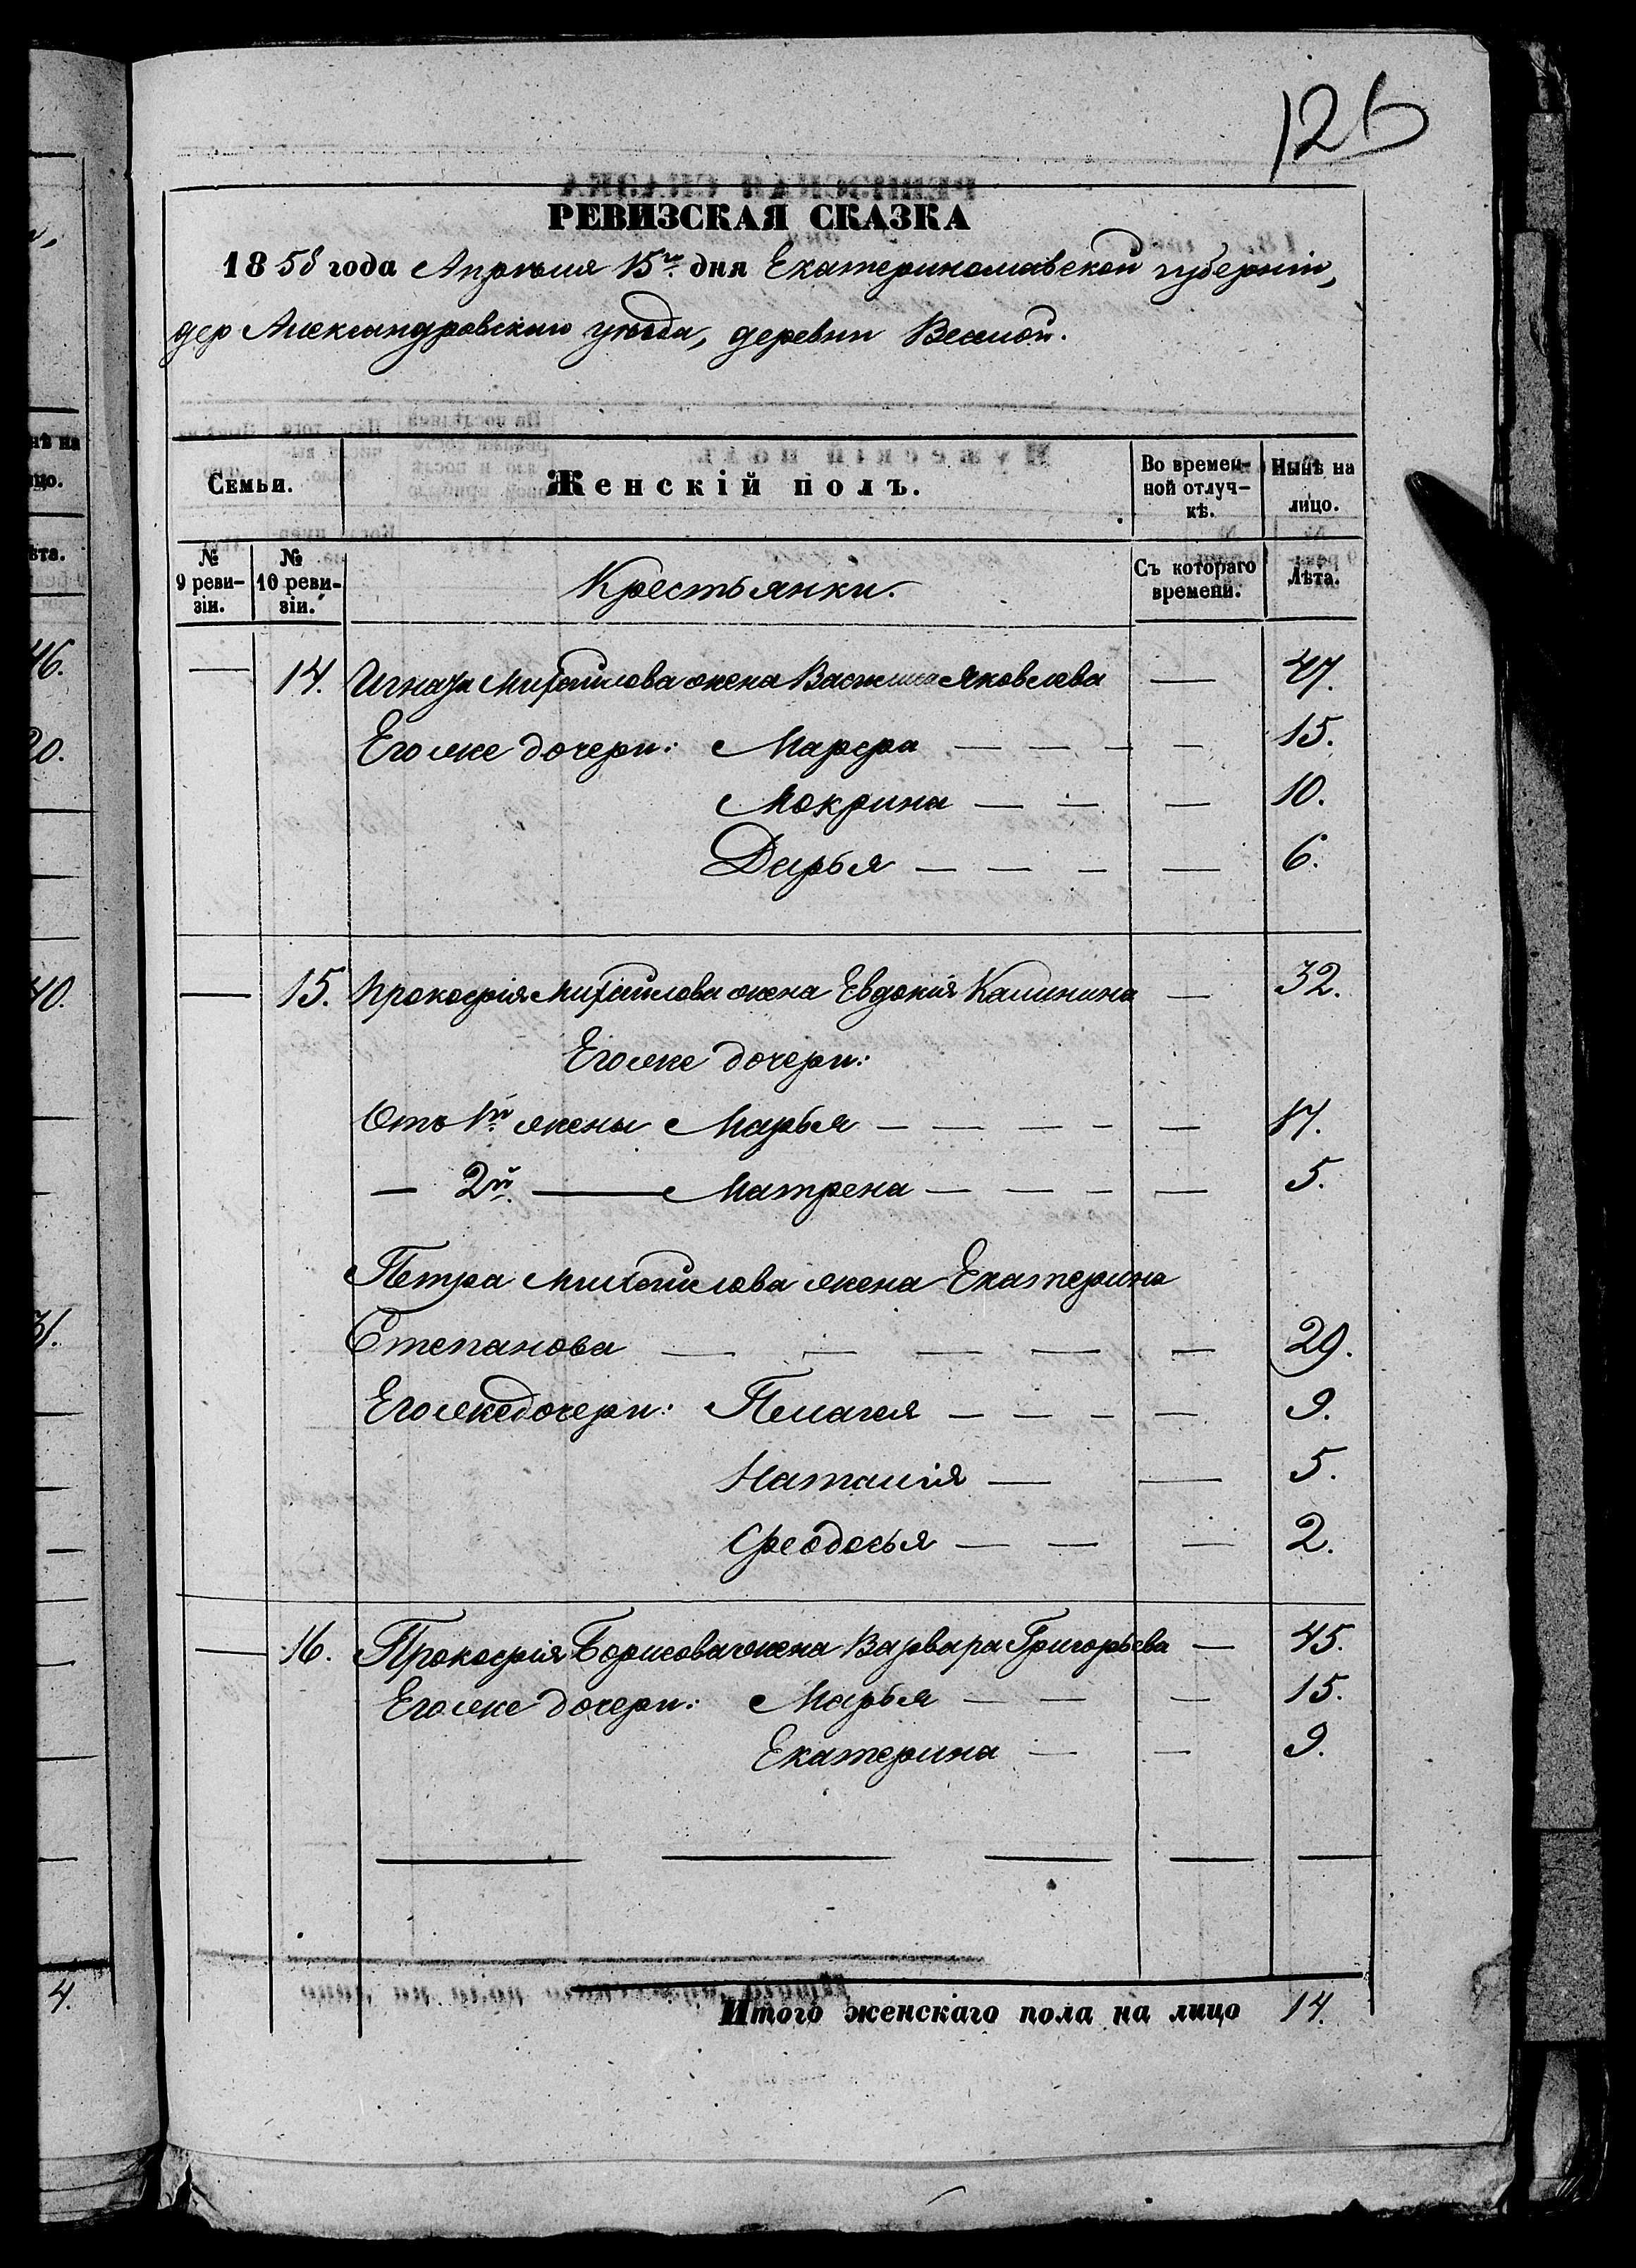 126
РЕВИЗСКАЯ СКАЗКА
1858 года Апрѣля 15го дня Екатеринославской губерніи,
дер Александровскаго уѣзда, деревни Веселой.
Семьи. Женскій полъ. Во времен-
ной отлуч-
кѣ. Нынѣ на
лицо.
№
9 реви-
зіи. №
10 реви-
зіи. Крестьянки. Съ котораго
времени. Лѣта.
— 14. Игната Михайлова жена Василиса Яковлева — 47.
Его же дочери: Марфа — — — — 15.
Мокрина — — — 10.
Дарья — — — — 6.
— 15. Прокофія Михайлова жена Евдокія Калинина — 32.
Его же дочери:
Отъ 1й жены Марья — — — — — 17.
— 2й — Матрена — — — — 5.
Петра Михайлова жена Екатерина
Степанова — — — — — 29.
Его же дочери: Пелагея — — — — 9.
Наталія — — 5.
Феодосья — — — 2.
— 16. Прокофія Борисова жена Варвара Григорьева — 45.
Его же дочери: Марья — — — 15.
Екатерина — — 9.
Итого женскаго пола на лицо 14.